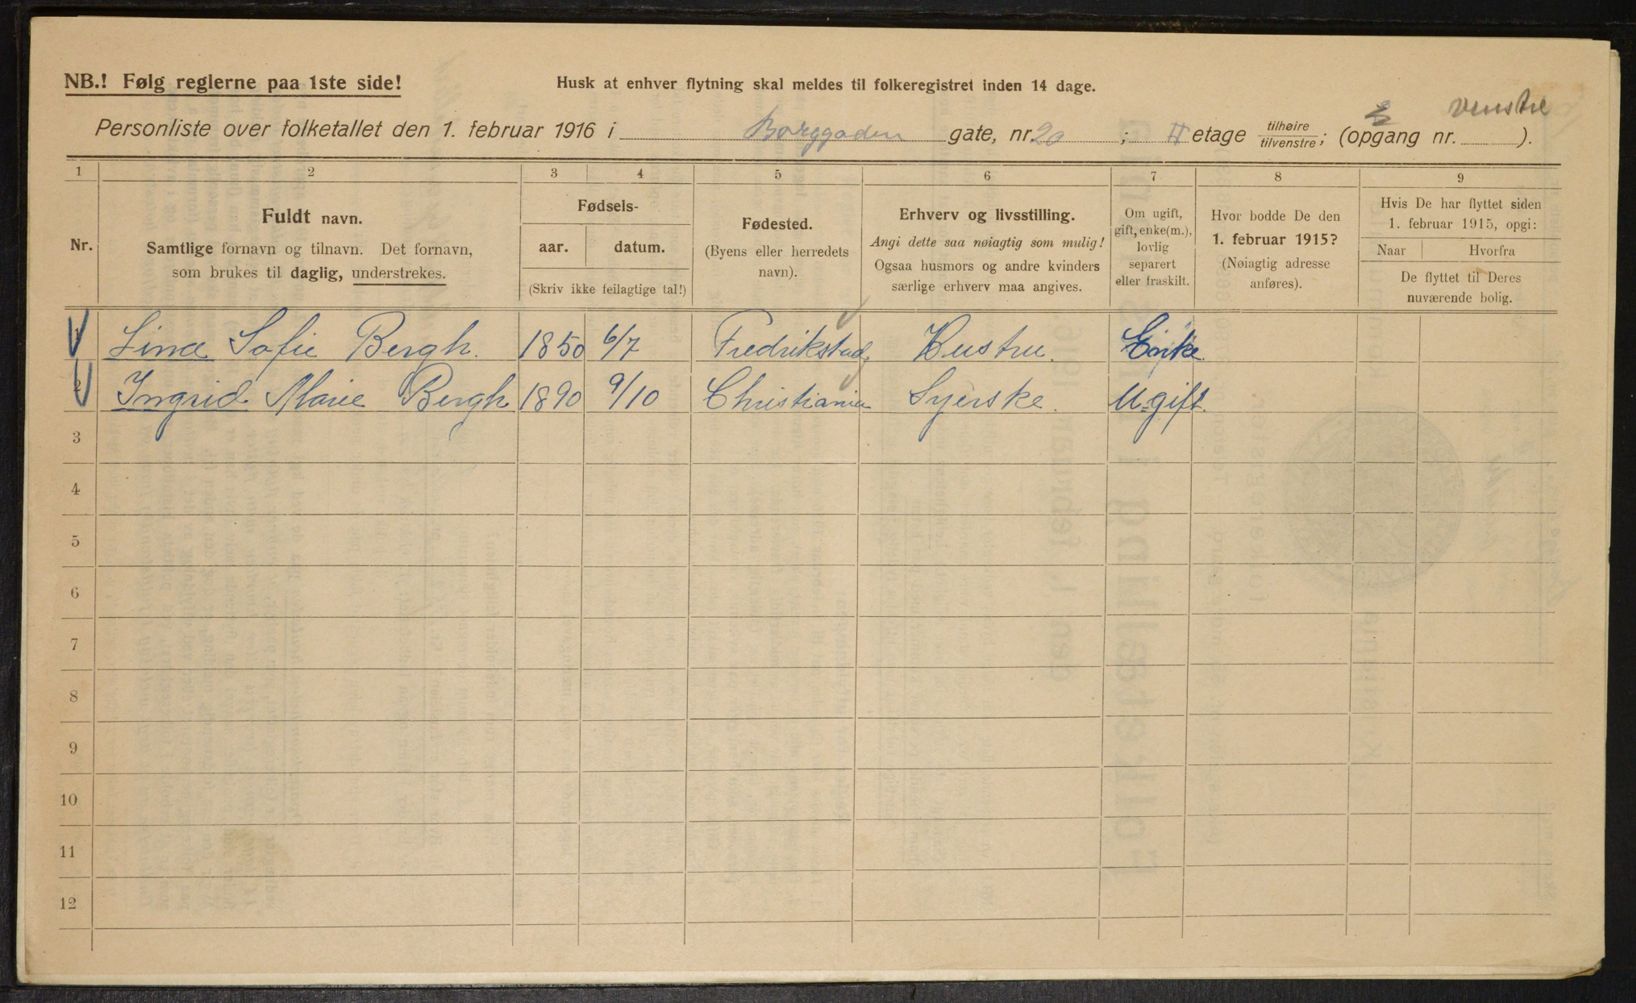 NB.! Følg reglerne paa 1ste side!
Husk at enhver flytning skal meldes til folkeregistret inden 14 dage.
E venstre
Personliste over folketallet den 1. februar 1916 i Borggaden gate, nr. 20 ; II etage tilhøire/tilvenstre; (opgang nr. ).
1 2 3 4 5 6 7 8 9
Nr.
Fuldt navn.
Samtlige fornavn og tilnavn. Det fornavn,
som brukes til daglig, understrekes.
Fødsels-
aar. datum.
(Skriv ikke feilagtige tal!)
Fødested.
(Byens eller herredets
navn).
Erhverv og livsstilling.
Angi dette saa nøiagtig som mulig!
Ogsaa husmors og andre kvinders
særlige erhverv maa angives.
Om ugift,
gift, enke(m.),
lovlig
separert
eller fraskilt.
Hvor bodde De den
1. februar 1915?
(Nøiagtig adresse
anføres).
Hvis De har flyttet siden
1. februar 1915, opgi:
Naar Hvorfra
De flyttet til Deres
nuværende bolig.
1 Lina Sofie Bergh. 1850 6/7 Fredrikstad Hustru. Enke
2 Ingrid Marie Bergh 1890 9/10 Christiania Syerske. Ugift.
3
4
5
6
7
8
9
10
11
12